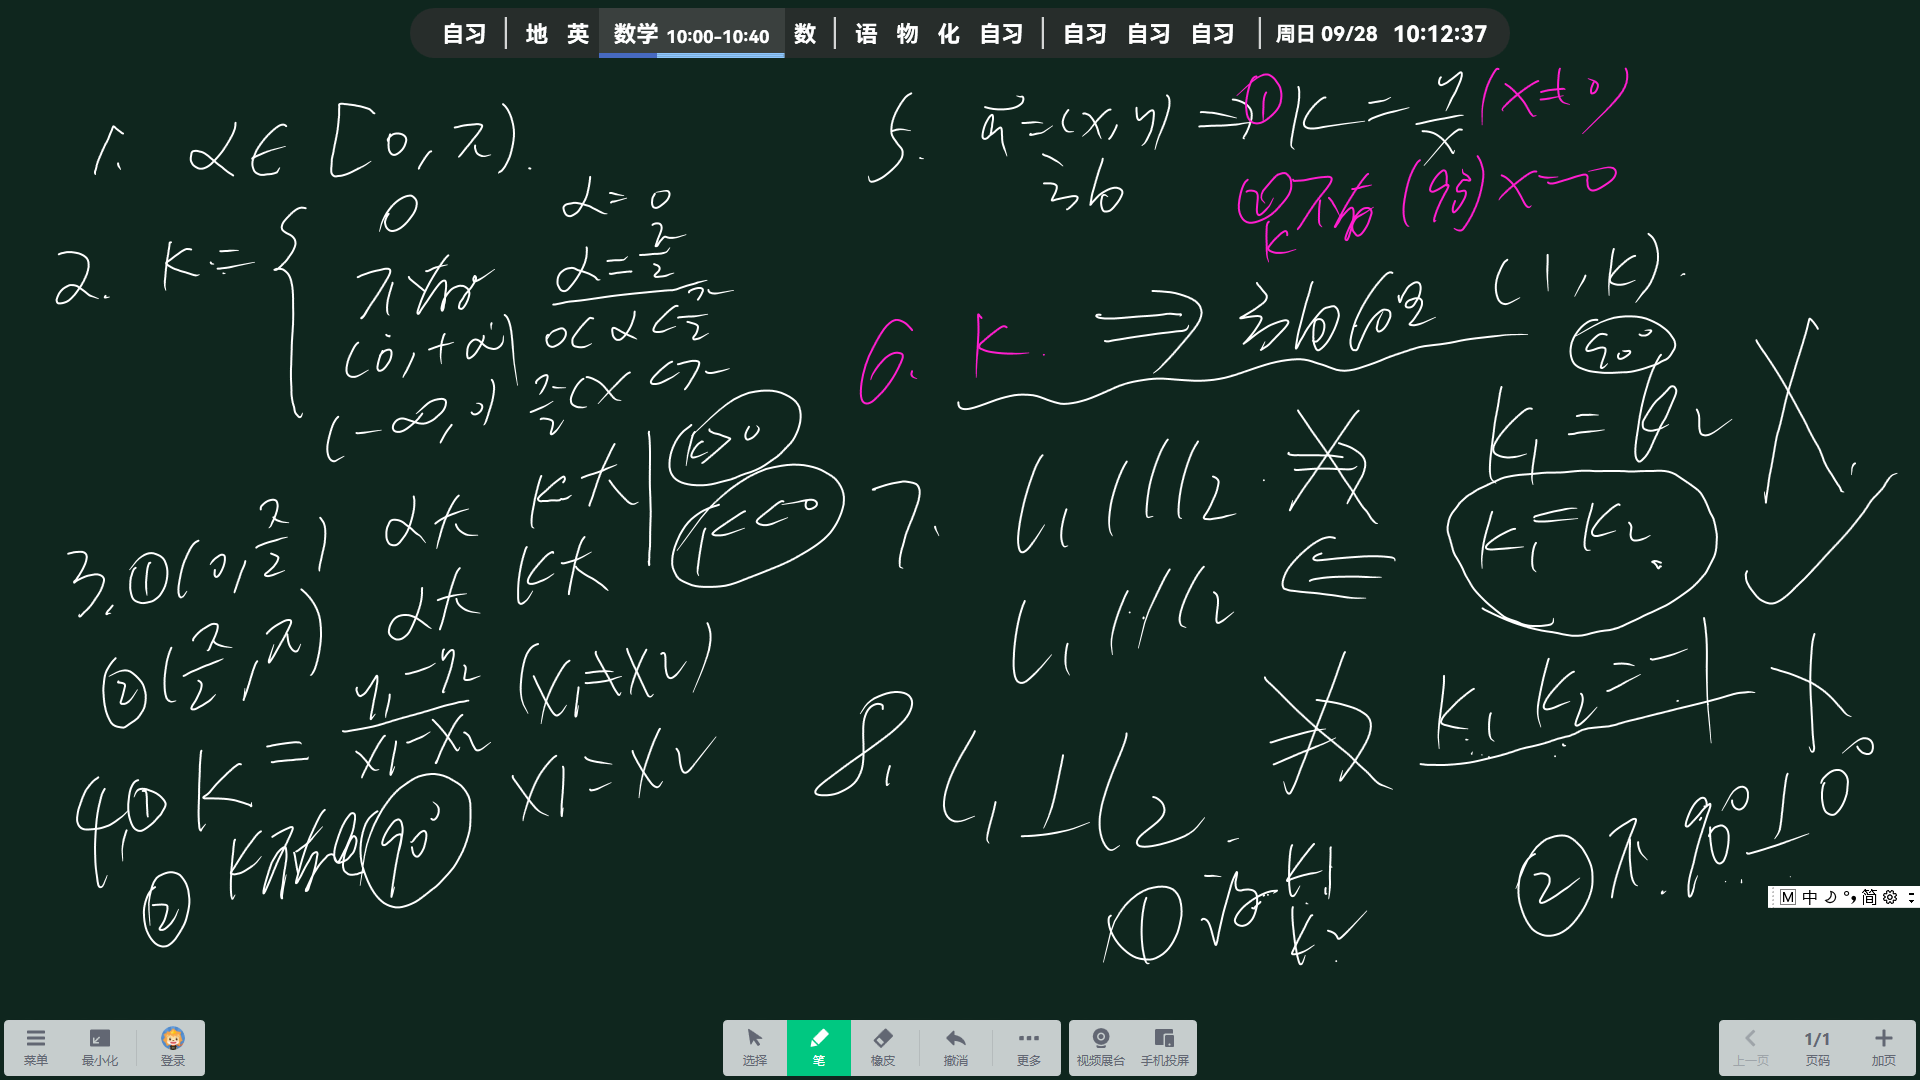 自习 | 地 英 数学 10:00-10:40 数 | 语 物 化 自习 | 自习 自习 自习 | 周日 09/28 10:12:37
1. α∈[0,π).
2. K= { 0 α=0
不存在 α=π/2
(0,+∞) 0<α<π/2
(-∞,0) π/2<α<π
3.①(0,π/2) α大 K大 | K>0
②(π/2,π) α大 K大 | K<0
4.① K=(y₁-y₂)/(x₁-x₂) (x₁≠x₂)
② K不存在(90° x₁=x₂
5. a⃗=(x,y) ⇒ ① K=y/x (x≠0)
方向
②K不存在(90°) x=0
6. K. ⇒ 方向向量 (1,K).
90°
7. l₁∥l₂ ⇏ K₁=K₂ ✗
l₁∥l₂ ⇐ K₁=K₂. ✓
8. l₁⊥l₂ ⇏ K₁K₂=-1 ✗
① 设 K₁ K₂
② 不 90°⊥0°
M 中 简
菜单 最小化 登录
选择 笔 橡皮 撤消 更多
视频展台 手机投屏
上一页 1/1 页码 加页